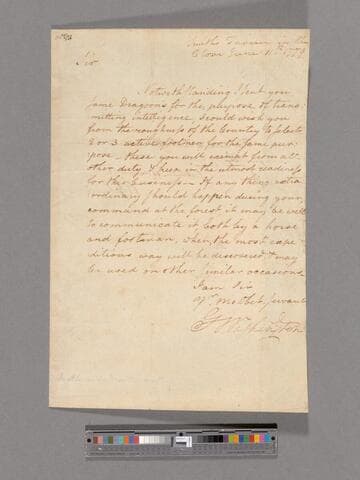 Smiths Tavern in the
Clove June 11th 1779
Sir
Notwithstanding I sent you
some Dragoons for the purpose of trans
mitting intelligence, I could wish you
from the roughness of the Country to select
2 or 3 active footmen for the same pur
pose – these you will exempt from all
other duty & keep in the utmost readiness
for this business – If any thing extra
ordinary should happen during your
command at the forest it may be well
to communicate it both by a horse
and footman, when the most expe
ditious way will be discovered & may
be used on other similar occasions
I am Sir
Yr. most obt. servant
Go Washington